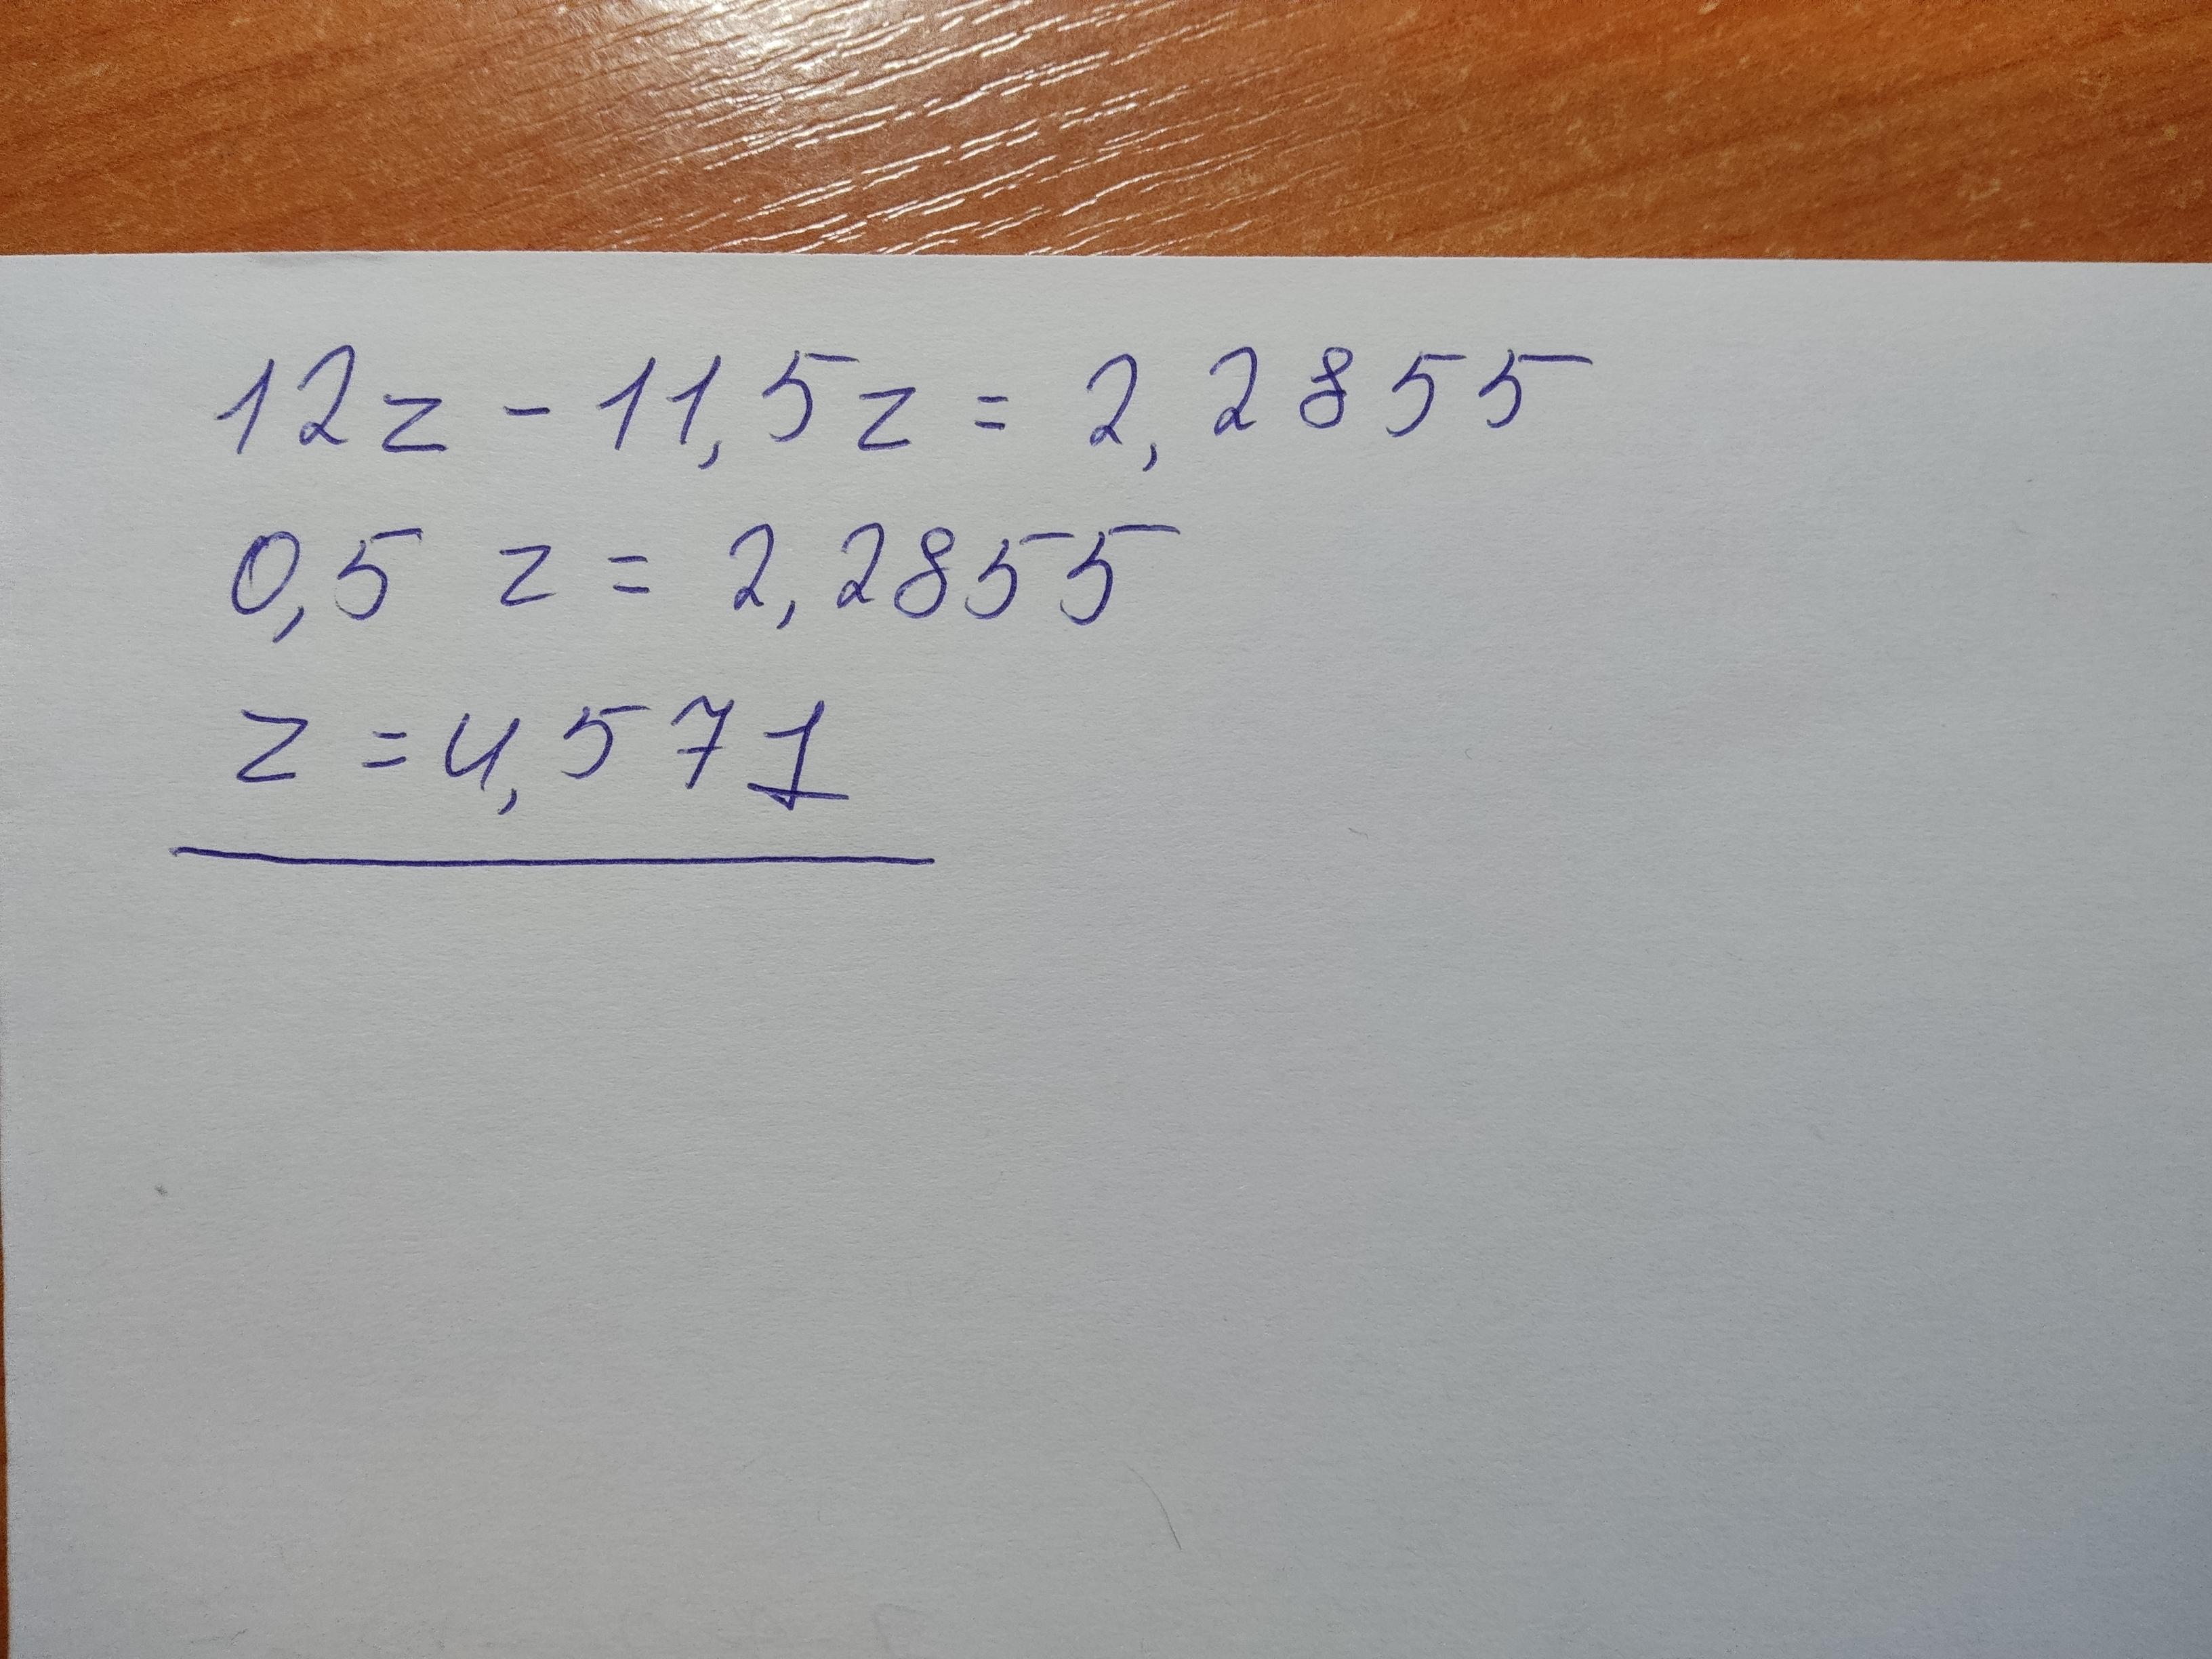 12z - 11,5z = 2,2855
0,5 z = 2,2855
z = 4,571